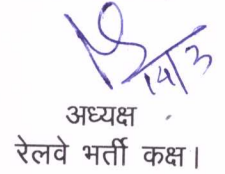 14/3
अध्यक्ष
रेलवे भर्ती कक्ष।